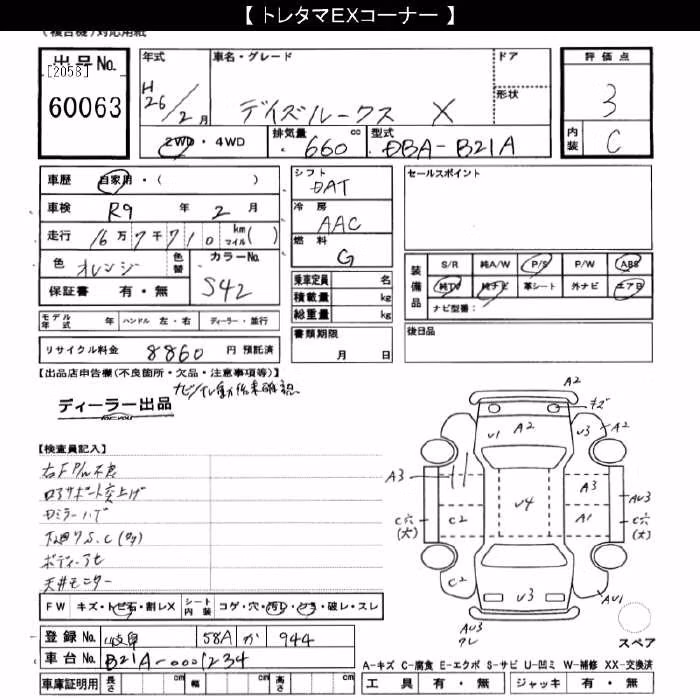 【 トレタマEXコーナー 】
(複合機)対応用紙
出品No.
[2058]
60063
年式
H26/2月
車名・グレード
デイズルークス X
ドア
形状
評価点
3
内装 C
2WD・4WD
排気量 660 cc
型式 DBA-B21A
車歴 自家用・( )
車検 R9 年 2 月
走行 16万7千710 km マイル( )
色 オレンジ 色替
カラーNo. S42
保証書 有・無
モデル年式 年 ハンドル 左・右 ディーラー・並行
リサイクル料金 8860 円 預託済
シフト DAT
冷房 AAC
燃料 G
乗車定員 名
積載量 kg
総重量 kg
書類期限
月 日
セールスポイント
装備品
S/R 純A/W P/S P/W ABS
純TV 純ナビ 革シート 外ナビ エアB
ナビ型番:
後日品
【出品店申告欄(不良箇所・欠品・注意事項等)】
ナビ/TV動作未確認
ディーラー出品
【検査員記入】
右F P/W不良
ロアサポート突上げ
ミラーハゲ
下廻りS.C(多)
ボディーアセ
天井モニター
FW キズ・トビ石・割レX
シート内装 コゲ・穴・汚レ・シミ・破レ・スレ
登録No. 岐阜 58A か 944
車台No. B21A-0001234
車庫証明用 長さ cm 幅 cm 高さ cm
A2
キズ
V1 A2 V3 A2
A3 A3
V4 AU3
C2 A1
C穴(大) C穴(大)
C2 V3 AU1
AU3
ワレ
スペア
A-キズ C-腐食 E-エクボ S-サビ U-凹ミ W-補修 XX-交換済
工具 有・無 ジャッキ 有・無